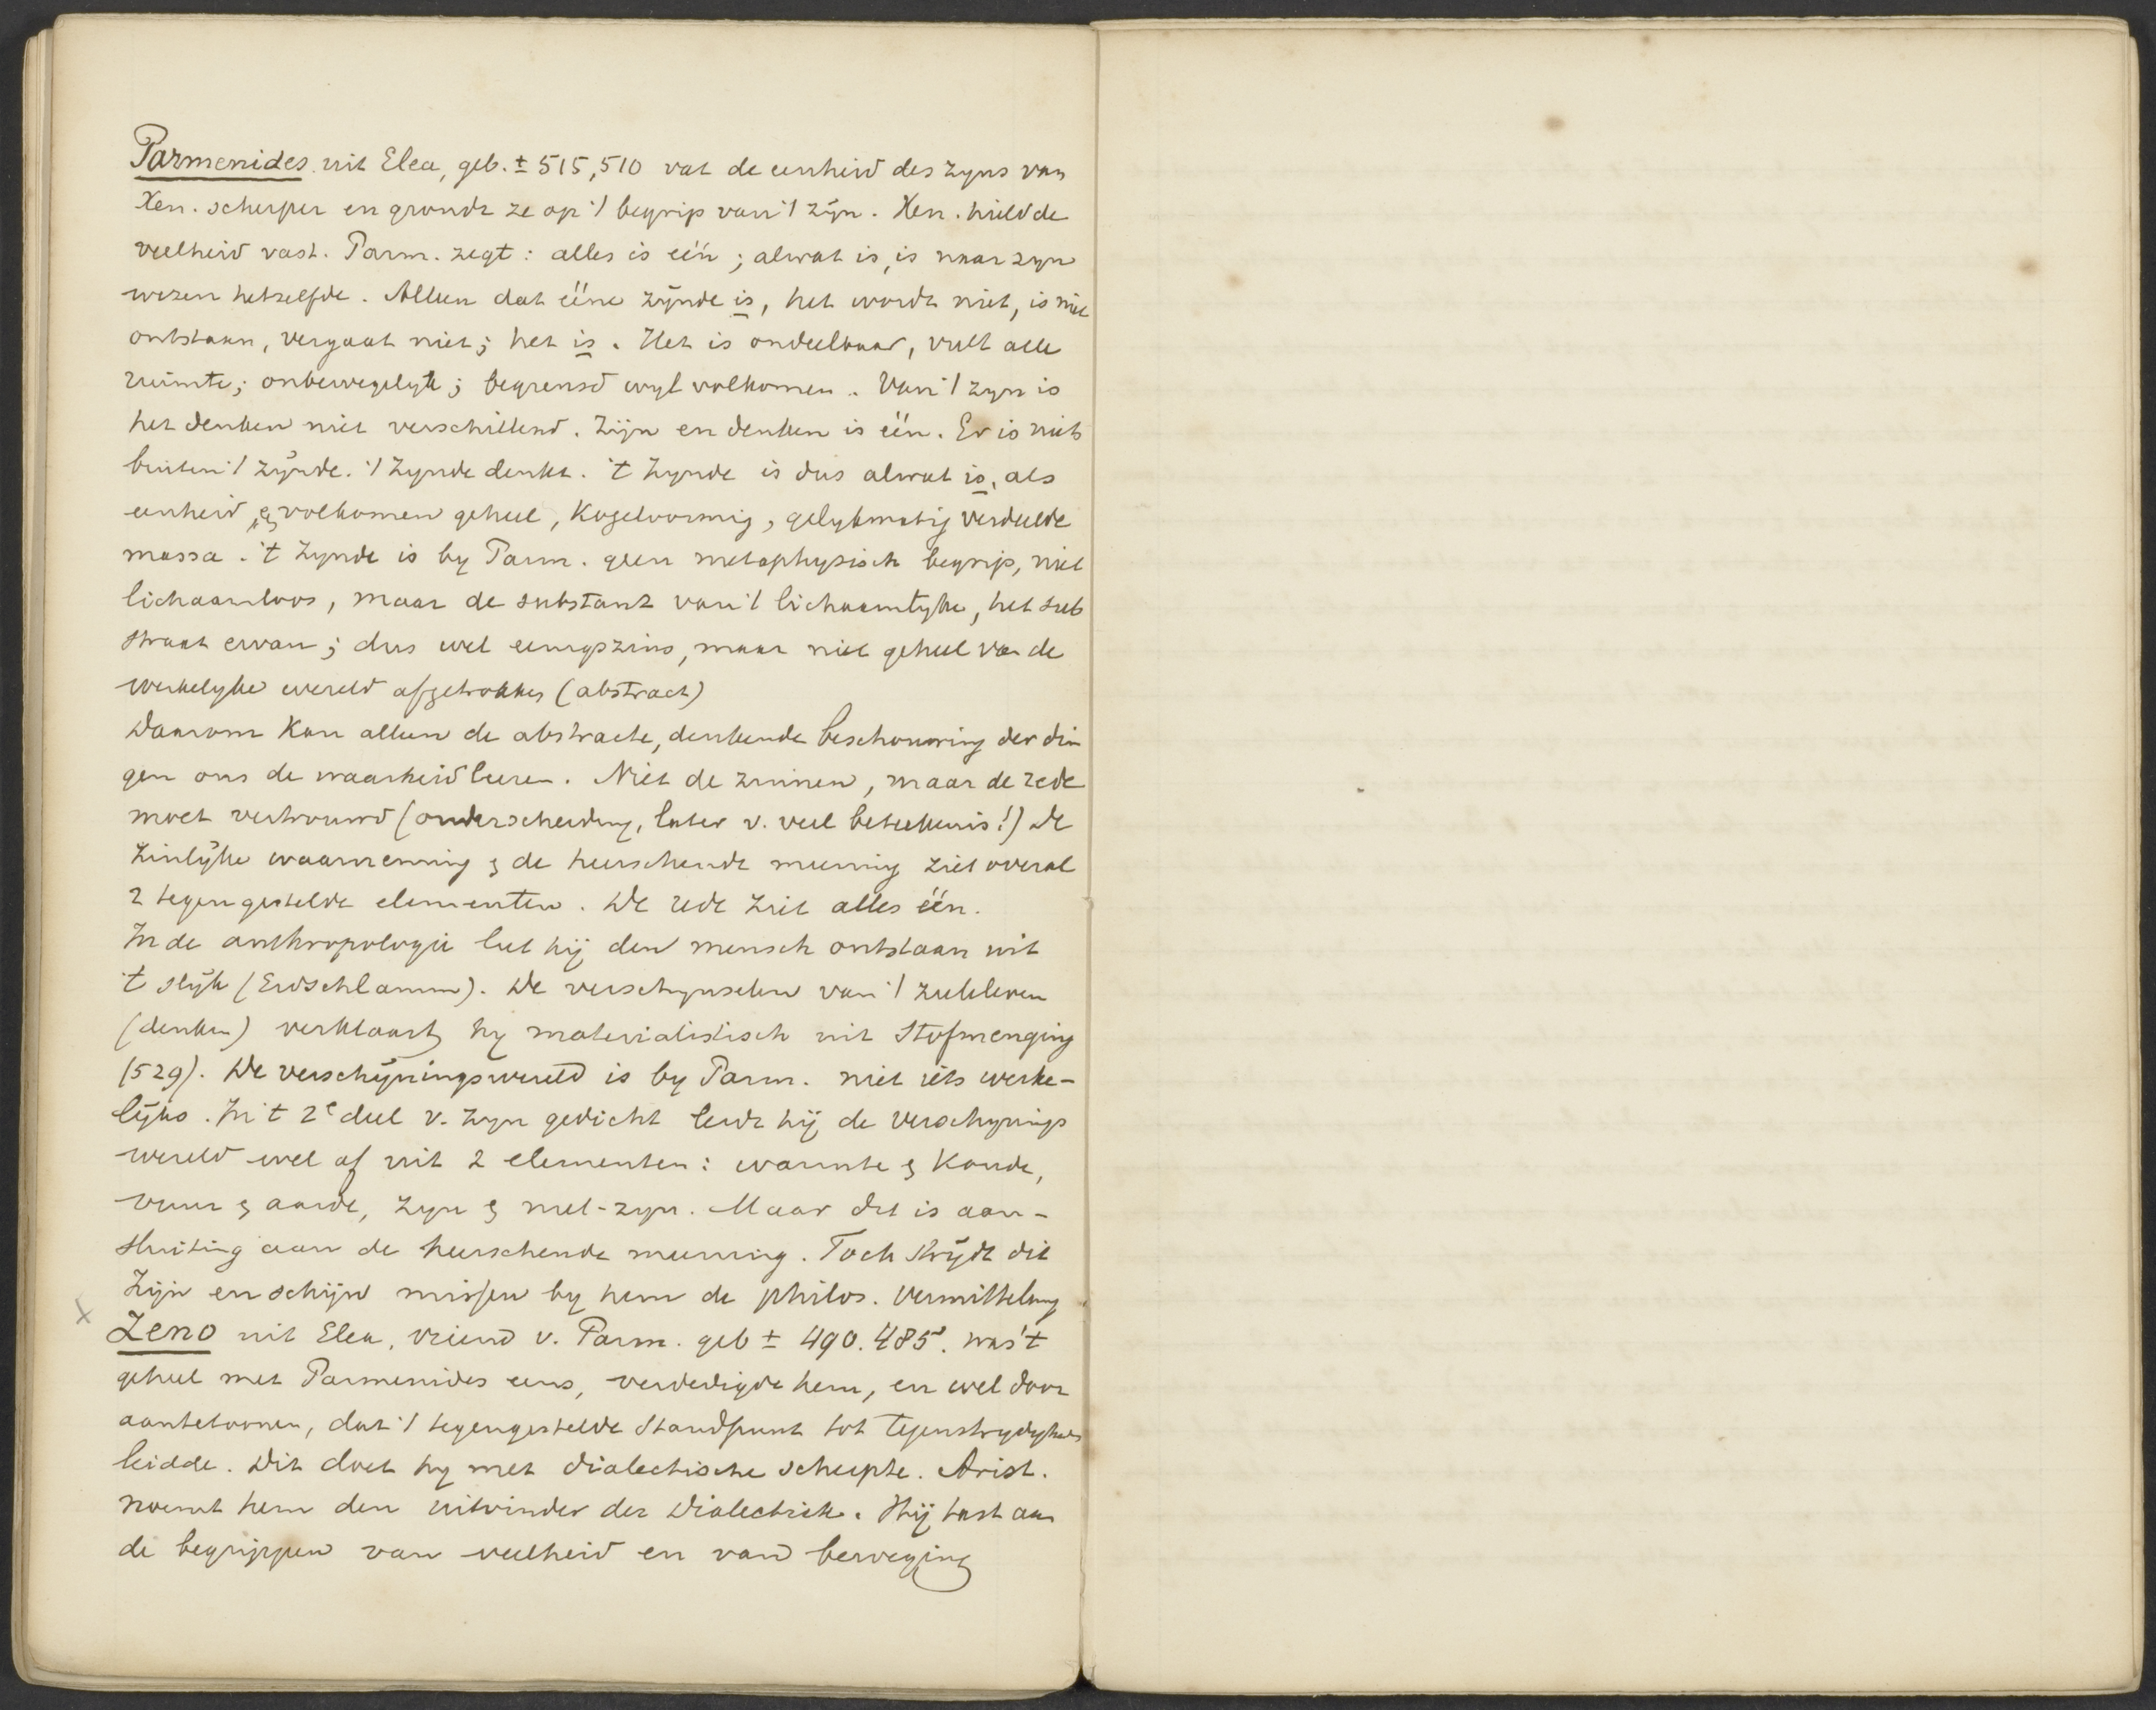 Parmenides uit Elea, geb. ± 515,510 vat de eenheid des zijns van
Xen. scherper en grondt ze op 't begrip van 't zijn. Xen. hield de
veelheid vast. Parm. zegt: alles is één; al wat is, is naar zijn
wezen hetzelfde. Alleen dat ééne zijnde is, het wordt niet, is niet
ontstaan, vergaat niet; het is. Het is ondeelbaar, vult alle
ruimte; onbewegelijk; begrensd wijl volkomen. Van 't zijn is
het denken niet verschillend. Zijn en denken is één. Er is niets
buiten 't zijnde. 't Zijnde denkt. 't Zijnde is dus al wat is, als
eenheid, & volkomen geheel, kogelvormig, gelijkmatig verdeelde
massa. 't Zijnde is by Parm. geen metaphysisch begrip, niet
lichaamloos, maar de substant van 't lichaamlijke, het sub
straat ervan; dus wel eenigszins, maar niet geheel van de
werkelijke wereld afgetrokken (abstract)
Daarom kan alleen de abstracte, denkende beschouwing der din
gen ons de waarheid leeren. Niet de zinnen, maar de rede
moet vertrouwd (onderscheiding, later v. veel beteekenis!) De
zinlijke waarneming & de heerschende meening ziet overal
2 tegengestelde elementen. De rede ziet alles één.
In de anthropologie laat hij den mensch ontstaan uit
't slijk (Erdschlamm). De verschijnselen van 't zieleleven
(denken) verklaart hy materialistisch uit stofmenging
(529). De verschijningswereld is by Parm. niet iets werke-
lijks. In 't 2e deel v. zijn gedicht leidt hij de verschijnings
wereld wel af uit 2 elementen: warmte & koude,
vuur & aarde, zijn & niet-zijn. Maar dit is aan-
sluiting aan de heerschende meening. Toch strijdt dit
Zijn en schijn missen by hem de philos. vermitteling
x Zeno uit Elea, vriend v. Parm. geb ± 490.485. was 't
geheel met Parmenides eens, verdedigde hem, en wel door
aantetoonen, dat 't tegengestelde standpunt tot tegenstrijdigheid
leidde. Dit doet hy met dialectische scherpte. Arist.
noemt hem den uitvinder der Dialectiek. Hij tast aan
de begrippen van veelheid en van beweging